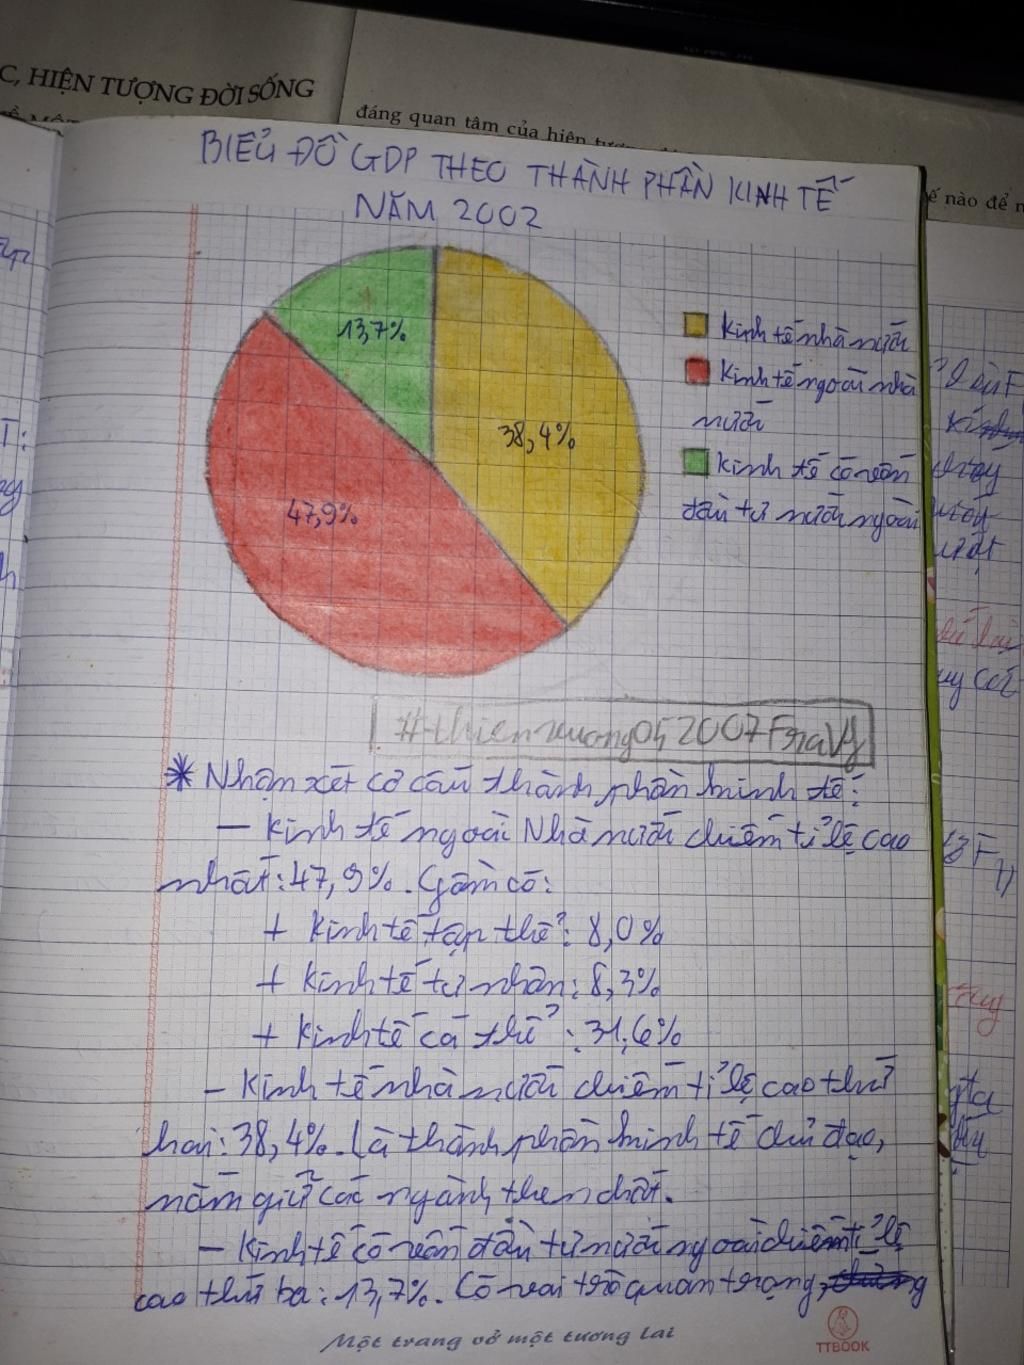 C, HIỆN TƯỢNG ĐỜI SỐNG
đáng quan tâm của hiện
ế nào để n
BIỂU ĐỒ GDP THEO THÀNH PHẦN KINH TẾ
NĂM 2002
13,7%
38,4%
47,9%
Kinh tế nhà nước
Kinh tế ngoài nhà
nước
Kinh tế có vốn
đầu tư nước ngoài
* Nhận xét cơ cấu thành phần kinh tế:
- Kinh tế ngoài Nhà nước chiếm tỉ lệ cao
nhất: 47,9%. Gồm có:
+ Kinh tế tập thể: 8,0%
+ Kinh tế tư nhân: 8,3%
+ Kinh tế cá thể: 31,6%
- Kinh tế nhà nước chiếm tỉ lệ cao thứ
hai: 38,4%. Là thành phần kinh tế chủ đạo,
nắm giữ các ngành then chốt.
- Kinh tế có vốn đầu tư nước ngoài chiếm tỉ lệ
cao thứ ba: 13,7%. Có vai trò quan trọng,
Một trang vở một tương lai
TTBOOK